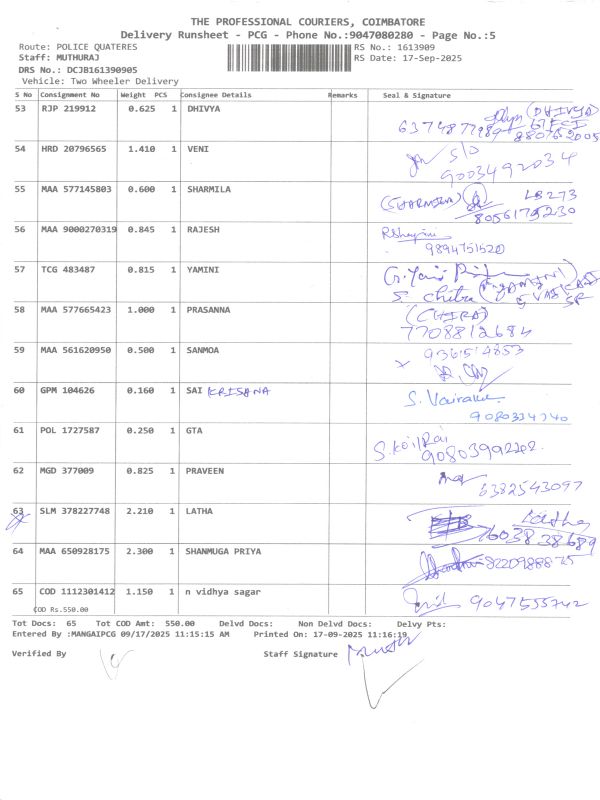 THE PROFESSIONAL COURIERS, COIMBATORE
Delivery Runsheet - PCG - Phone No.:9047080280 - Page No.:5
Route: POLICE QUATERES RS No.: 1613909
Staff: MUTHURAJ RS Date: 17-Sep-2025
DRS No.: DCJB161390905
Vehicle: Two Wheeler Delivery
S No Consignment No Weight PCS Consignee Details Remarks Seal & Signature
53 RJP 219912 0.625 1 DHIVYA (DHIVYA)
54 HRD 20796565 1.410 1 VENI S/O
9003492034
55 MAA 577145803 0.600 1 SHARMILA (SHARMILA) LB273
8056175230
56 MAA 9000270319 0.845 1 RAJESH
9894751520
57 TCG 483487 0.815 1 YAMINI
S. chitra
58 MAA 577665423 1.000 1 PRASANNA (CHIRA)
7708812684
59 MAA 561620950 0.500 1 SANMOA 9361514853
60 GPM 104626 0.160 1 SAI KRISANA S. Vairaku
9080334740
61 POL 1727587 0.250 1 GTA
90803992202
62 MGD 377009 0.825 1 PRAVEEN
6382543097
63 SLM 378227748 2.210 1 LATHA Latha
64 MAA 650928175 2.300 1 SHANMUGA PRIYA 8220988875
65 COD 1112301412 1.150 1 n vidhya sagar 9047555742
COD Rs.550.00
Tot Docs: 65 Tot COD Amt: 550.00 Delvd Docs: Non Delvd Docs: Delvy Pts:
Entered By :MANGAIPCG 09/17/2025 11:15:15 AM Printed On: 17-09-2025 11:16:19
Verified By Staff Signature